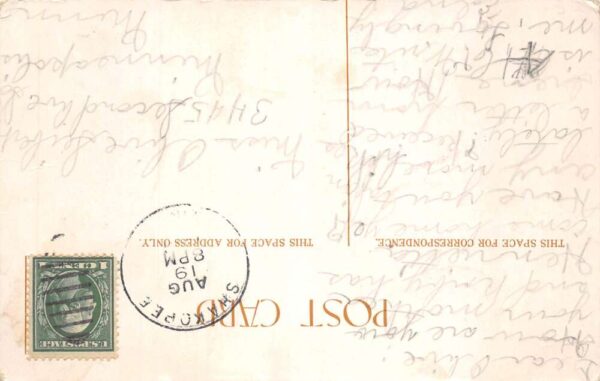 POST CARD
THIS SPACE FOR CORRESPONDENCE.
THIS SPACE FOR ADDRESS ONLY.
SHAKOPEE
AUG
19
8PM
U.S. POSTAGE
1 CENT 1
Dear Olive:
How are you
your mother
and has
Henrietta
come home yet
Have you
any more
lately? Received
a letter from
How
is Write
me,
Lovingly
Miss Olive
3445 Second Ave S.
Minneapolis
Minn